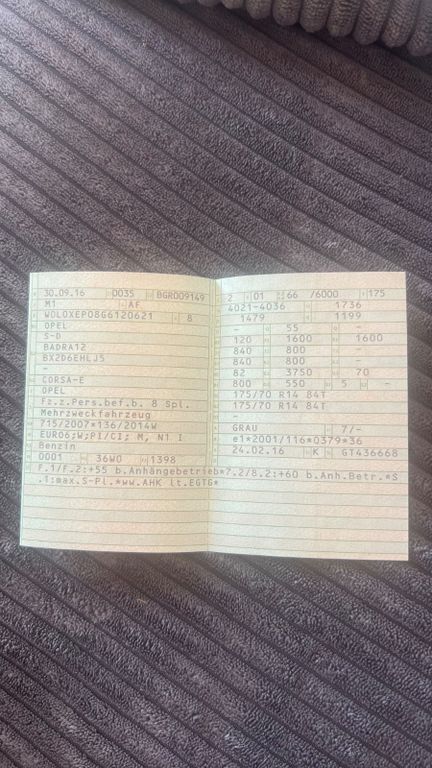 30.09.16 0035 BGR009149
M1 AF
W0L0XEP08G6120621 8
OPEL
S-D
BADRA12
BX2D6EHLJ5
-
CORSA-E
OPEL
Fz.z.Pers.bef.b. 8 Spl.
Mehrzweckfahrzeug
715/2007*136/2014W
EURO6;W;PI/CI; M, N1 I
Benzin
0001 36W0 1398
2 01 66 /6000 175
4021-4036 1736
1479 1199
- 55 -
120 1600 1600
840 800 -
840 800 -
82 3750 70
800 550 5 -
175/70 R14 84T
175/70 R14 84T
-
GRAU 7/-
e1*2001/116*0379*36
24.02.16 K GT436668
F.1/F.2:+55 b.Anhängebetrieb*7.2/8.2:+60 b.Anh.Betr.*S
.1:max.S-Pl.*ww.AHK lt.EGTG*